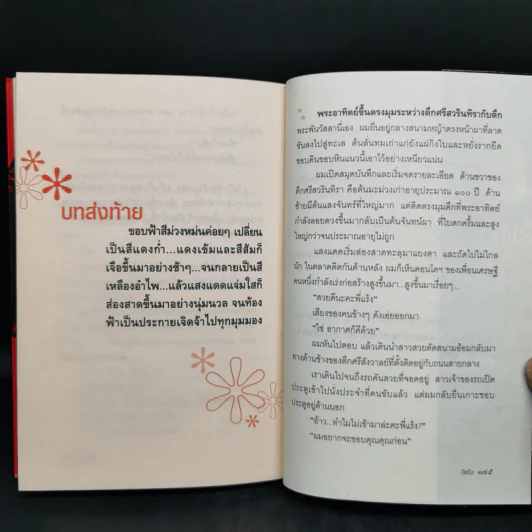 บทส่งท้าย
ขอบฟ้าสีม่วงหม่นค่อยๆ เปลี่ยน
เป็นสีแดงก่ำ...แดงเข้มและสีส้มก็
เจือขึ้นมาอย่างช้าๆ...จนกลายเป็นสี
เหลืองอำไพ...แล้วแสงแดดแจ่มใสก็
ส่องสาดขึ้นมาอย่างนุ่มนวล จนท้อง
ฟ้าเป็นประกายเจิดจ้าไปทุกมุมมอง
พระอาทิตย์ขึ้นตรงมุมระหว่างตึกศรีสวรินทิรากับตึก
พระพันวัสสานี่เอง ผมยืนอยู่กลางสนามหญ้าตรงหน้าผาที่ลาด
ชันลงไปสู่ทะเล ต้นลั่นทมเก่าแก่ยังแผ่กิ่งใบและหยั่งรากยึด
ขอบดินขอบหินแนวนี้เอาไว้อย่างเหนียวแน่น
ผมเปิดสมุดบันทึกและเริ่มจดรายละเอียด ด้านขวาของ
ตึกศรีสวรินทิรา คือต้นมะม่วงเก่าอายุประมาณ ๑๐๐ ปี ด้าน
ซ้ายมีต้นแสงจันทร์ที่ใหญ่มาก แต่ติดตรงมุมตึกที่พระอาทิตย์
กำลังลอยดวงขึ้นมากลับเป็นต้นจันทน์ผา ที่ใบดกครึ้มและสูง
ใหญ่กว่าจนประมาณอายุไม่ถูก
แสงแดดเริ่มส่องสาดทะลุมาแยงตา และถัดไปไม่ไกล
นัก ในตลาดติดกันด้านหลัง ผมก็เห็นคอนโดฯ ของเพื่อนเศรษฐี
คนหนึ่งกำลังเร่งก่อสร้างสูงขึ้นมา...สูงขึ้นมาเรื่อยๆ...
"สวยดีนะคะพี่แร้ง"
เสียงของคนข้างๆ ดังเอ่ยออกมา
"ใช่ อากาศก็ดีด้วย"
ผมหันไปตอบ แล้วเดินนำสาวสวยตัดสนามอ้อมกลับมา
ทางด้านข้างของตึกศรีสังวาลย์ที่ตั้งติดอยู่กับถนนสายกลาง
เราเดินไปจนถึงรถคันสวยที่จอดอยู่ สาวเจ้าของรถเปิด
ประตูเข้าไปนั่งประจำที่คนขับแล้ว แต่ผมกลับยืนเกาะขอบ
ประตูอยู่ด้านนอก
"อ้าว...ทำไมไม่เข้ามาล่ะคะพี่แร้ง?"
"ผมอยากจะขอบคุณคุณก่อน"
๑๗๕